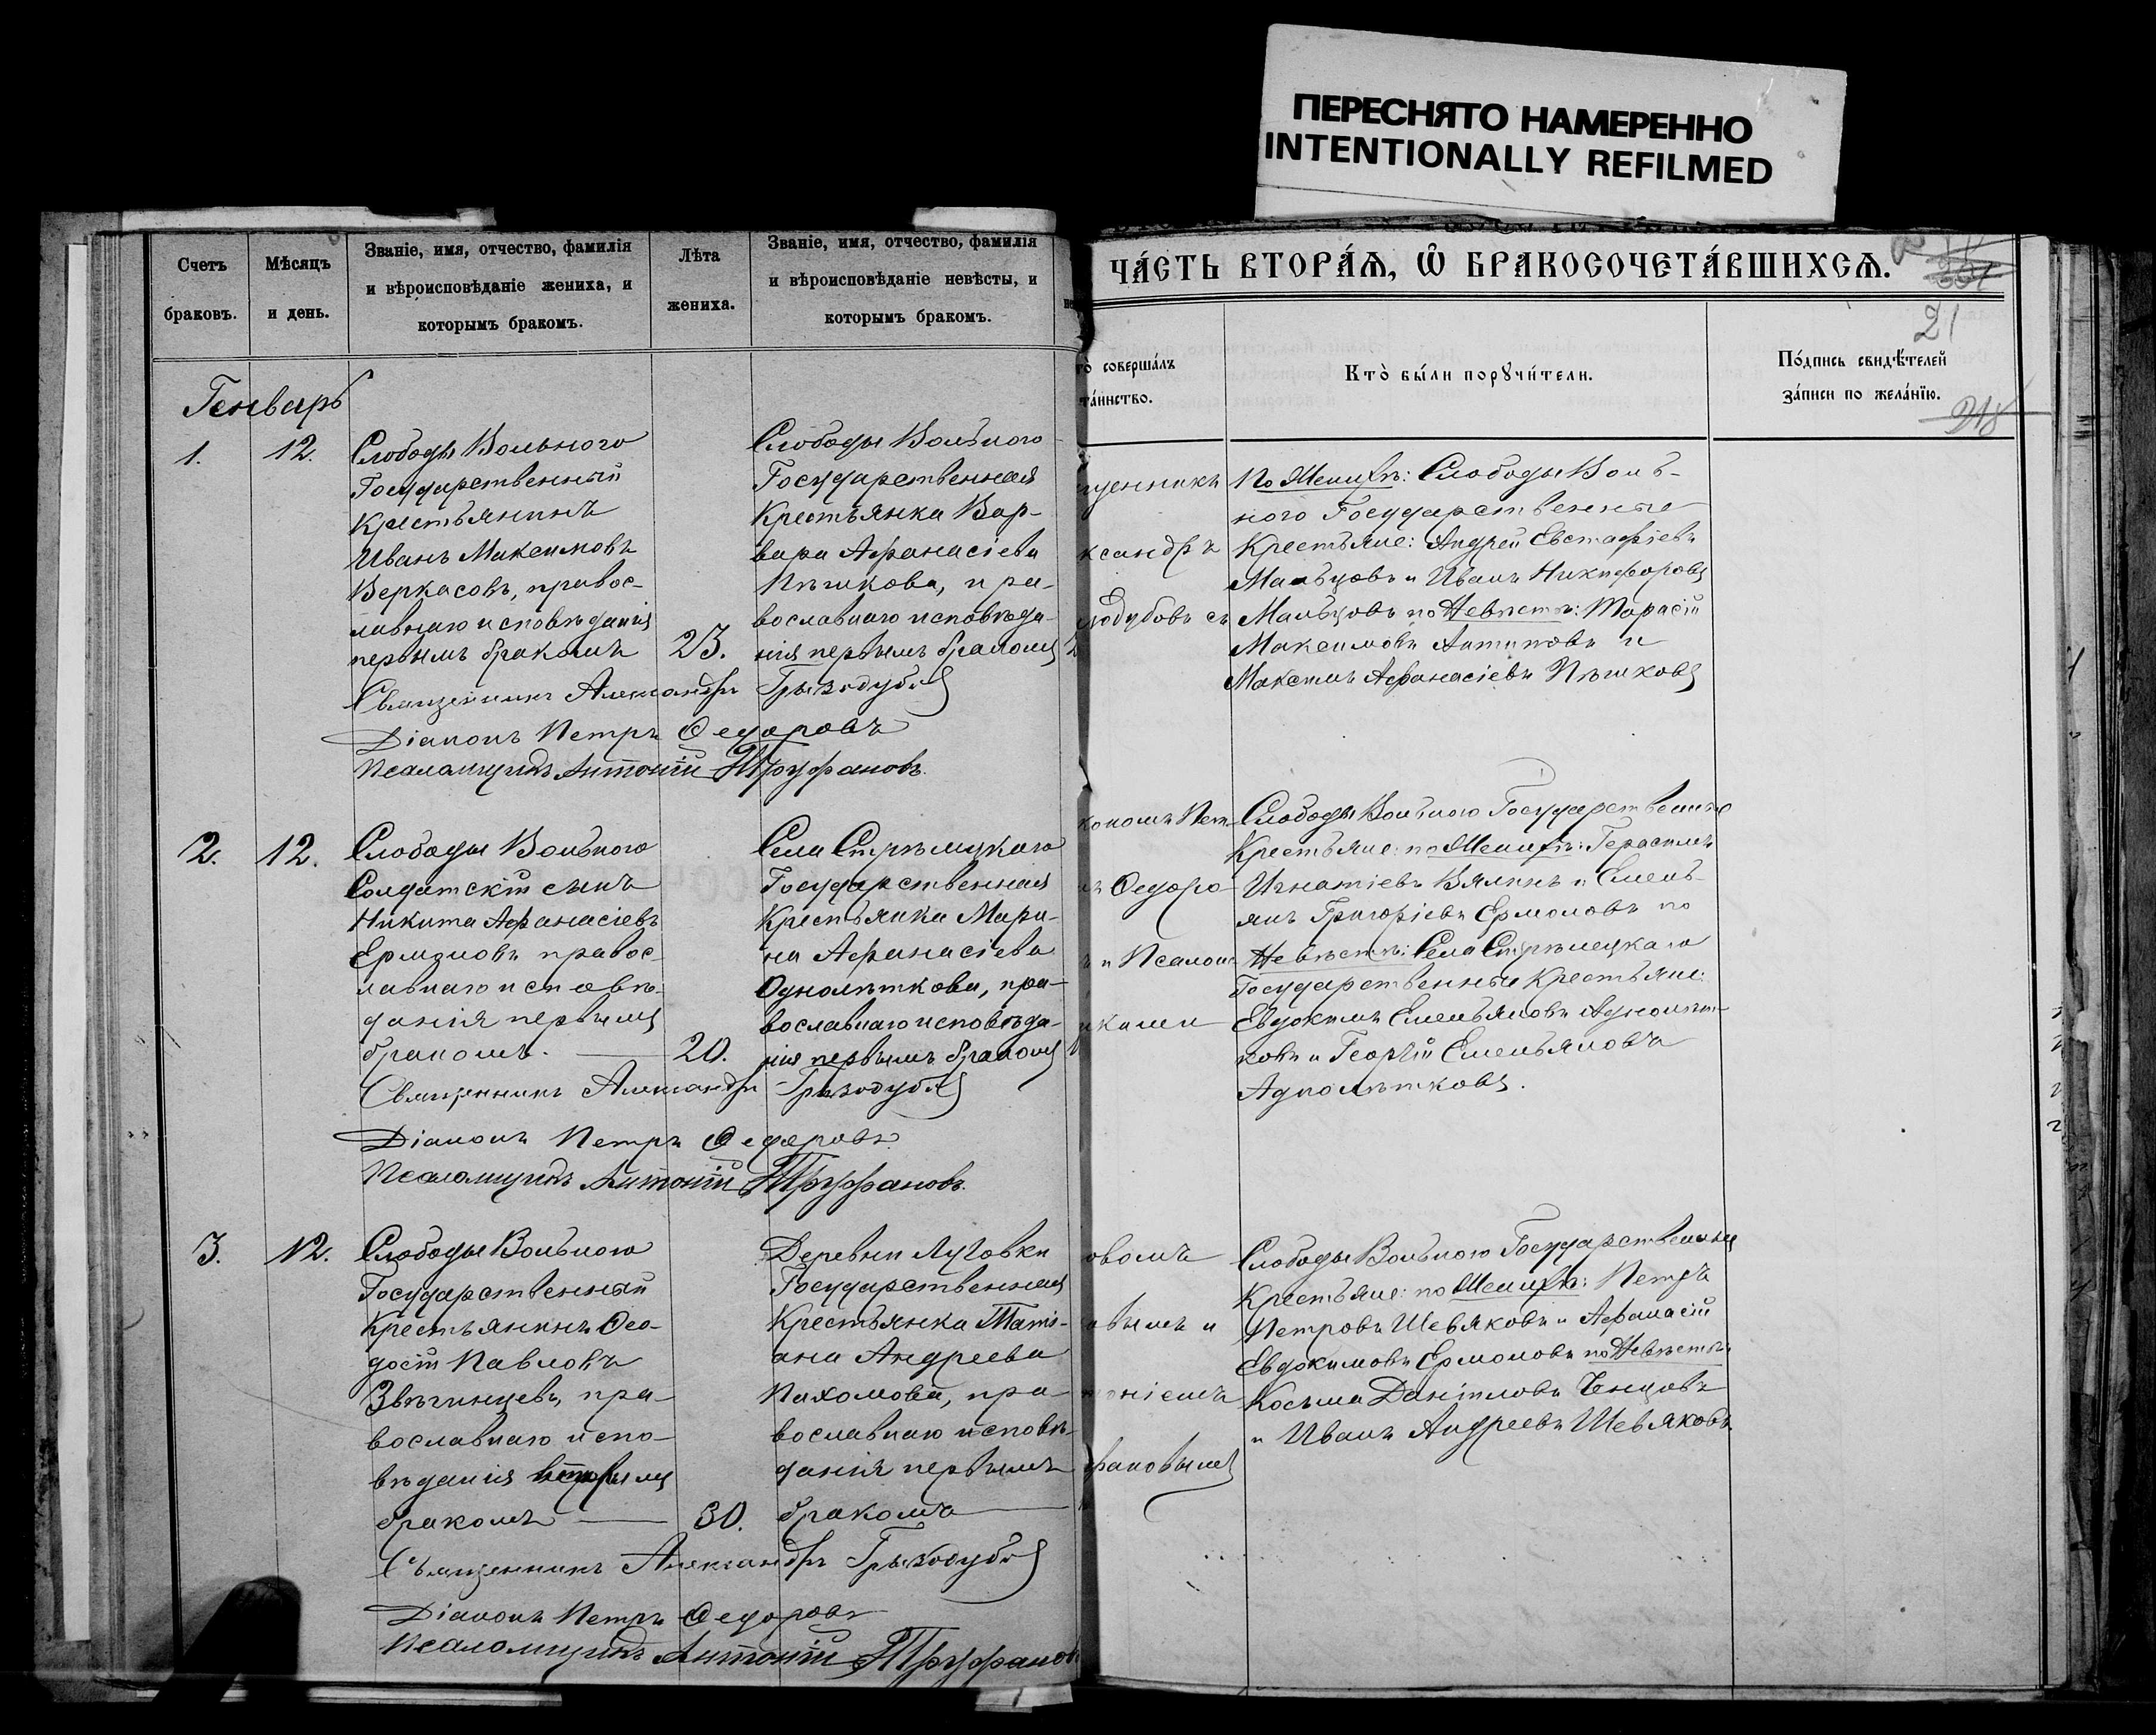 ПЕРЕСНЯТО НАМЕРЕННО
INTENTIONALLY REFILMED
Счетъ
браковъ.
Мѣсяцъ
и день.
Званіе, имя, отчество, фамилія
и вѣроисповѣданіе жениха, и
которымъ бракомъ.
Лѣта
жениха.
Званіе, имя, отчество, фамилія
и вѣроисповѣданіе невѣсты, и
которымъ бракомъ.
Генварь
1.
12.
Слободы Вольного
Государственный
Крестьянинъ
Иванъ Максимовъ
Веркасовъ, правос-
лавнаго исповѣданія
первымъ бракомъ
23.
Слободы Вольного
Государственная
Крестьянка Вар-
вара Афанасіева
Пѣшкова, пра-
вославнаго исповѣда-
нія первымъ бракомъ
Священникъ Александръ Грызодубов
Діаконъ Петръ Ѳедоровъ
Псаломщикъ Антоній Труфановъ.
2.
12.
Слободы Вольного
Солдатскій сынъ
Никита Афанасіевъ
Ермоловъ правос-
лавнаго исповѣ-
данія первымъ
бракомъ.
20.
Села Стрѣлецкаго
Государственная
Крестьянка Мари-
на Афанасіева
Однолѣткова, пра-
вославнаго исповѣда-
нія первымъ бракомъ
Священникъ Александръ Грызодубов
Діаконъ Петръ Ѳедоровъ
Псаломщикъ Антоній Труфановъ.
3.
12.
Слободы Вольного
Государственный
Крестьянинъ Ѳео-
досій Павловъ
Звѣгинцевъ, пра-
вославнаго испо-
вѣданія вторымъ
бракомъ
30.
Деревни Луговки
Государственная
Крестьянка Таті-
ана Андреева
Пахомова, пра-
вославнаго исповѣ-
данія первымъ
бракомъ
Священникъ Александръ Грызодубов
Діаконъ Петръ Ѳедоровъ
Псаломщикъ Антоній Труфанов
ЧА́СТЬ ВТОРА́Ѧ, Ѡ҆ БРАКОСОЧЕТА́ВШИХСѦ.
21
218
то̀ соверша́лъ
та́инство.
Кто̀ бы́ли порꙋчи́тели.
По́дпись свидѣ́телей
за́писи по жела́нїю.
щенникъ
ксандръ
зодубовъ съ
кономъ Пет-
ъ Ѳедоро-
ъ и Псалом-
иками
овомъ
овымъ и
оніемъ
фановымъ
По Женихѣ: Слободы Воль-
ного Государственные
Крестьяне: Андрей Евстафіевъ
Мальцовъ и Иванъ Никифоровъ
Мальцовъ по Невѣстѣ: Тарасій
Максимовъ Антиповъ и
Максимъ Афанасіевъ Пѣшковъ
Слободы Вольного Государственные
Крестьяне: по Женихѣ: Герасимъ
Игнатіевъ Вялинъ и Емель-
янъ Григоріевъ Ермоловъ по
Невѣстѣ: Села Стрѣлецкаго
Государственные Крестьяне:
Евдокимъ Емельяновъ Аднолѣт-
ковъ и Георгій Емельяновъ
Аднолѣтковъ.
Слободы Вольного Государственные
Крестьяне: по Женихѣ: Петръ
Петровъ Шевяковъ и Афанасій
Евдокимовъ Ермоловъ по Невѣстѣ
Косьма Даніиловъ Ченцовъ
и Иванъ Андреевъ Шевяковъ.